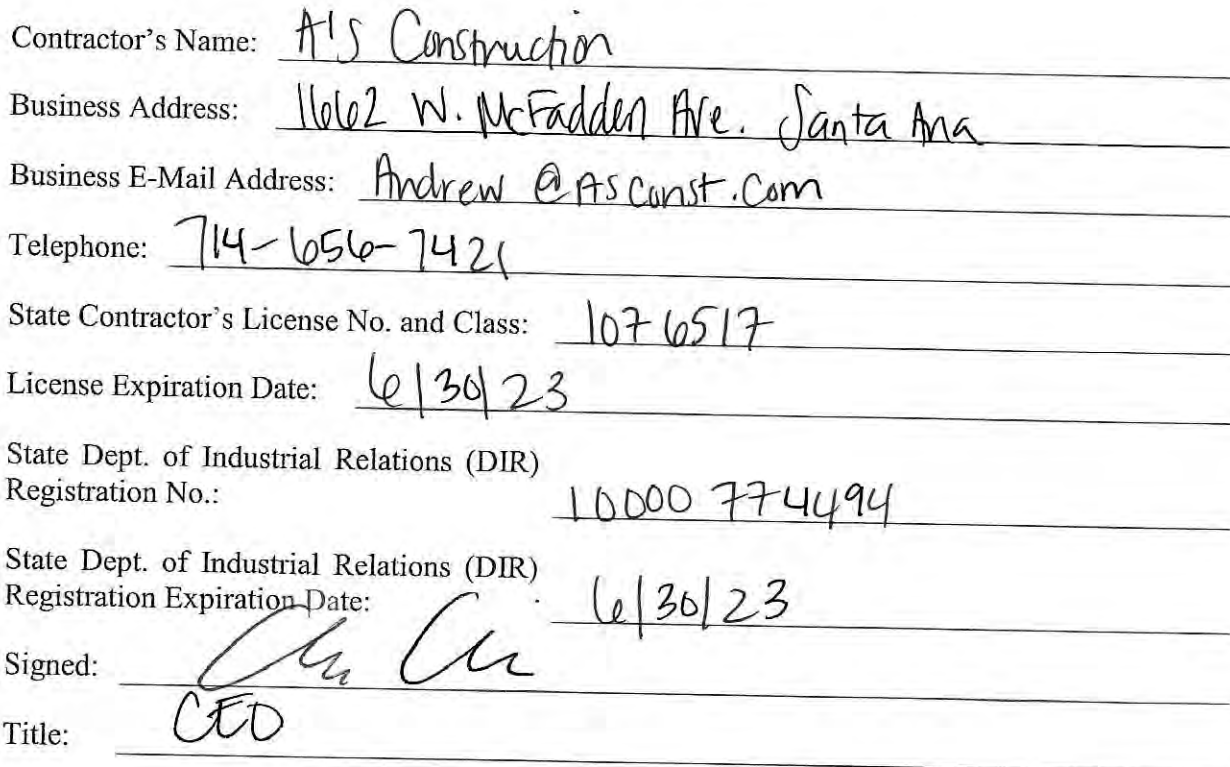 Contractor's Name: A's Construction
Business Address: 1662 W. McFadden Ave. Santa Ana
Business E-Mail Address: Andrew @ Asconst.com
Telephone: 714-656-7421
State Contractor's License No. and Class: 1076517
License Expiration Date: 6/30/23
State Dept. of Industrial Relations (DIR)
Registration No.: 10000 774494
State Dept. of Industrial Relations (DIR)
Registration Expiration Date: 6/30/23
Signed:
Title: CEO